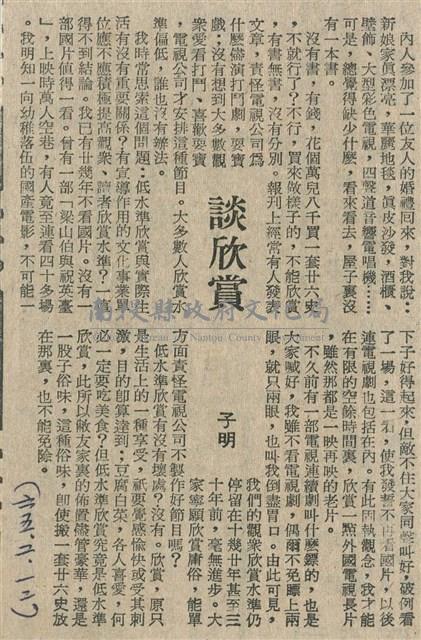 談欣賞
子明
內人參加了一位友人的婚禮回來，對我說：
新娘家眞漂亮，華麗地毯，眞皮沙發，酒櫃、
壁飾、大型彩色電視，四聲道音響電唱機……
可是，總覺得缺少什麼，看來看去，屋子裏沒
有一本書。
沒有書，有錢，花個萬兒八千買一套廿六史
，不就行了？不行，買來做樣子的，不能欣賞
，有書無書，沒有分別。報刊上經常有人發表
文章，責怪電視公司爲
什麼儘演打鬥劇，耍寶
戲；沒有想到大多數觀
衆愛看打鬥、喜歡耍寶
，電視公司才安排這種節目。大多數人欣賞水
準偏低，誰也沒有辦法。
我時常思索這個問題：低水準欣賞與實際生
活有沒有重要關係？有宣導作用的文化事業單
位應不應積極提高觀衆、讀者欣賞水準？一直
得不到結論。我已有廿幾年不看國片。沒有一
部國片値得一看。曾有一部「梁山伯與祝英臺
」，上映時萬人空巷，有人竟至連看四十多場
。我明知一向幼稚落伍的國產電影，不可能一
下子好得起來，但敵不住大家同聲叫好，破例看
了一場，這一看，使我發誓不再看國片，以後
連電視劇也包括在內。有此固執觀念，我才能
在有限的空餘時間裏，欣賞一點外國電視長片
，雖然那都是一映再映的老片。
不久前有一部電視連續劇叫什麼鏢的，也是
大家喊好，我雖不看電視劇，偶爾不免瞟上兩
眼，就只兩眼，也叫我倒盡胃口。由此可見，
我們的觀衆欣賞水準仍
停留在十幾廿年甚至三
十年前，毫無進步。大
家寧願欣賞庸俗，能單
方面責怪電視公司不製作好節目嗎？
低水準欣賞有沒有壞處？沒有。欣賞，原只
是生活上的一種享受，祇要覺感愉快或受其刺
激，目的卽算達到；豆腐白菜，各人喜愛，何
必一定要吃美食？但低水準欣賞究竟是低水準
欣賞，此所以敝友家裏的佈置儘管豪華，還是
一股子俗味，這種俗味，卽使搬一套廿六史放
在那裏，也不能免除。
（六五、2、一三）
南投縣政府文化局
Nantou County